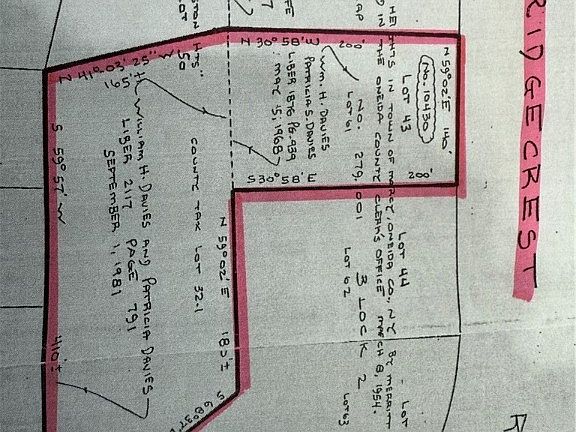 RIDGECREST
N 59° 02' E 140'
(No. 10430)
LOT 43
HEIGHTS IN TOWN OF MARCY, ONEIDA CO., N.Y. BY MERRITT
D IN THE ONEIDA COUNTY CLERK'S OFFICE MARCH 8, 1954.
AP
NO. 279.001
BLOCK 2
LOT 44
LOT
LOT 61
LOT 62
LOT 63
N 30° 58' W 200'
200'
S 30° 58' E
WM. H. DAVIES
PATRICIA S. DAVIES
LIBER 1876 PG. 939
MAY 15, 1968
N 59° 02' E 180'±
COUNTY TAX LOT 32.1
N 41° 03' 25" W
165'±
50
HTS"
LOT
WILLIAM H. DAVIES AND PATRICIA DAVIES
LIBER 2117 PAGE 791
SEPTEMBER 1, 1981
S 59° 57' W 410'±
S 68° 37'